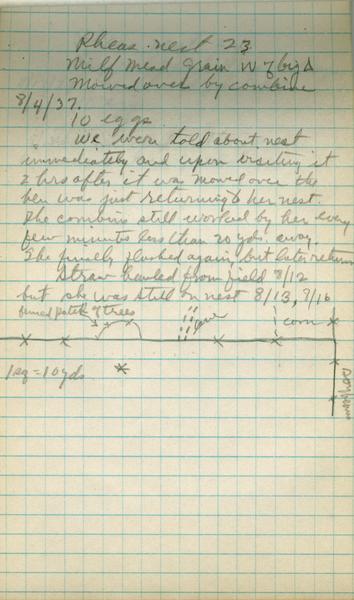 Pheas. nest 23
Milf Mead Grain W of big Δ
Mowed over by combine
8/4/37.
10 eggs
We were told about nest
immediately and upon visiting it
2 hrs after it was mowed over the
hen was just returning to her nest.
The combine still worked by her every
few minutes less than 20 yds. away.
She finally flushed again but later return
Straw hauled from field 8/12
but she was still on nest 8/13, 8/16
fenced patch of trees
corn
1 sq = 10 yds